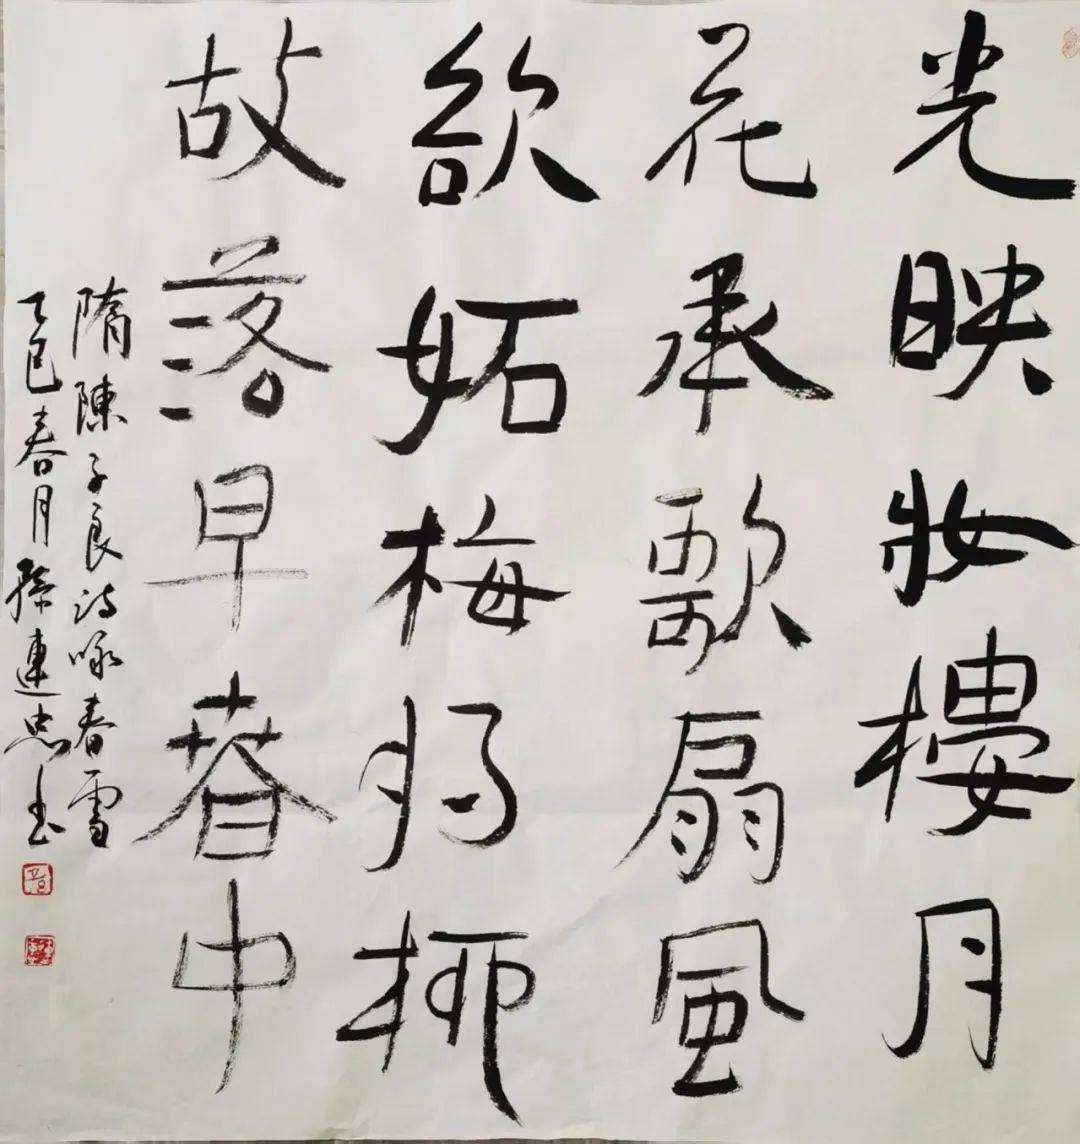 光映妝樓月
花承歌扇風
欲妬梅将柳
故落早春中
隋陳子良詩咏春雪
乙巳春月孫連忠書